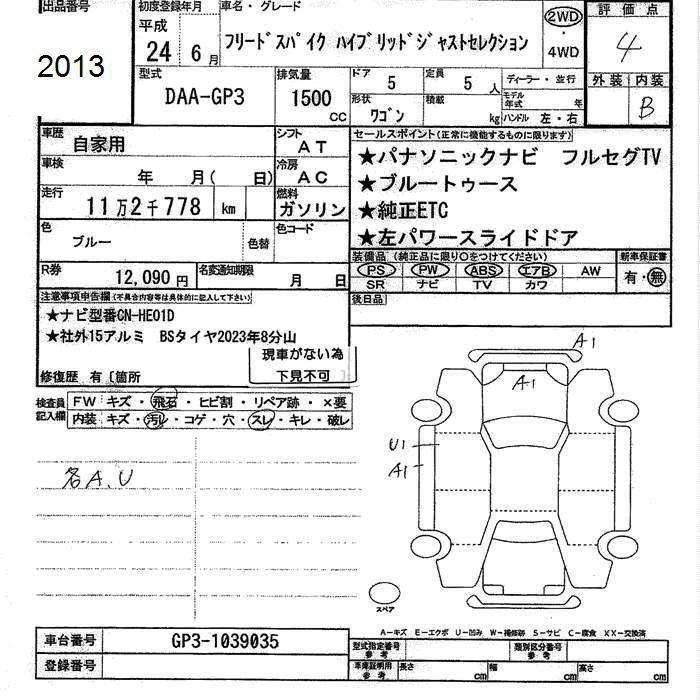 出品番号
2013
初度登録年月
平成
24 6 月
車名・グレード
フリードスパイク ハイブリッドジャストセレクション
2WD
・
4WD
評価点
4
外装 内装
B
型式
DAA-GP3
排気量
1500
cc
ドア
5
定員
5 人
形状
ワゴン
積載
kg
ディーラー・並行
モデル
年式 年
ハンドル 左・右
車歴
自家用
シフト
AT
車検
年 月( 日)
冷房
AC
走行
11万2千778 km
燃料
ガソリン
色
ブルー
色替
色コード
R券
12,090円
名変通知期限
月 日
セールスポイント(正常に機能するものに限ります)
★パナソニックナビ フルセグTV
★ブルートゥース
★純正ETC
★左パワースライドドア
装備品 (純正品に限り○をつけてください)
PS PW ABS エアB AW
SR ナビ TV カワ
新車保証書
有・無
後日品
注意事項申告欄(不具合内容等は具体的に記入して下さい)
★ナビ型番CN-HE01D
★社外15アルミ BSタイヤ2023年8分山
現車がない為
下見不可
修復歴 有〔箇所
検査員
記入欄
FW キズ・飛石・ヒビ割・リペア跡・×要
内装 キズ・汚レ・コゲ・穴・スレ・キレ・破レ
各A.U
A1
A1
U1
A1
スペア
A-キズ E-エクボ U-凹み W-補修跡 S-サビ C-腐食 XX-交換済
車台番号
GP3-1039035
登録番号
型式指定番号
参考
類別区分番号
参考
車庫証明用
参考
長さ cm
幅 cm
高さ cm